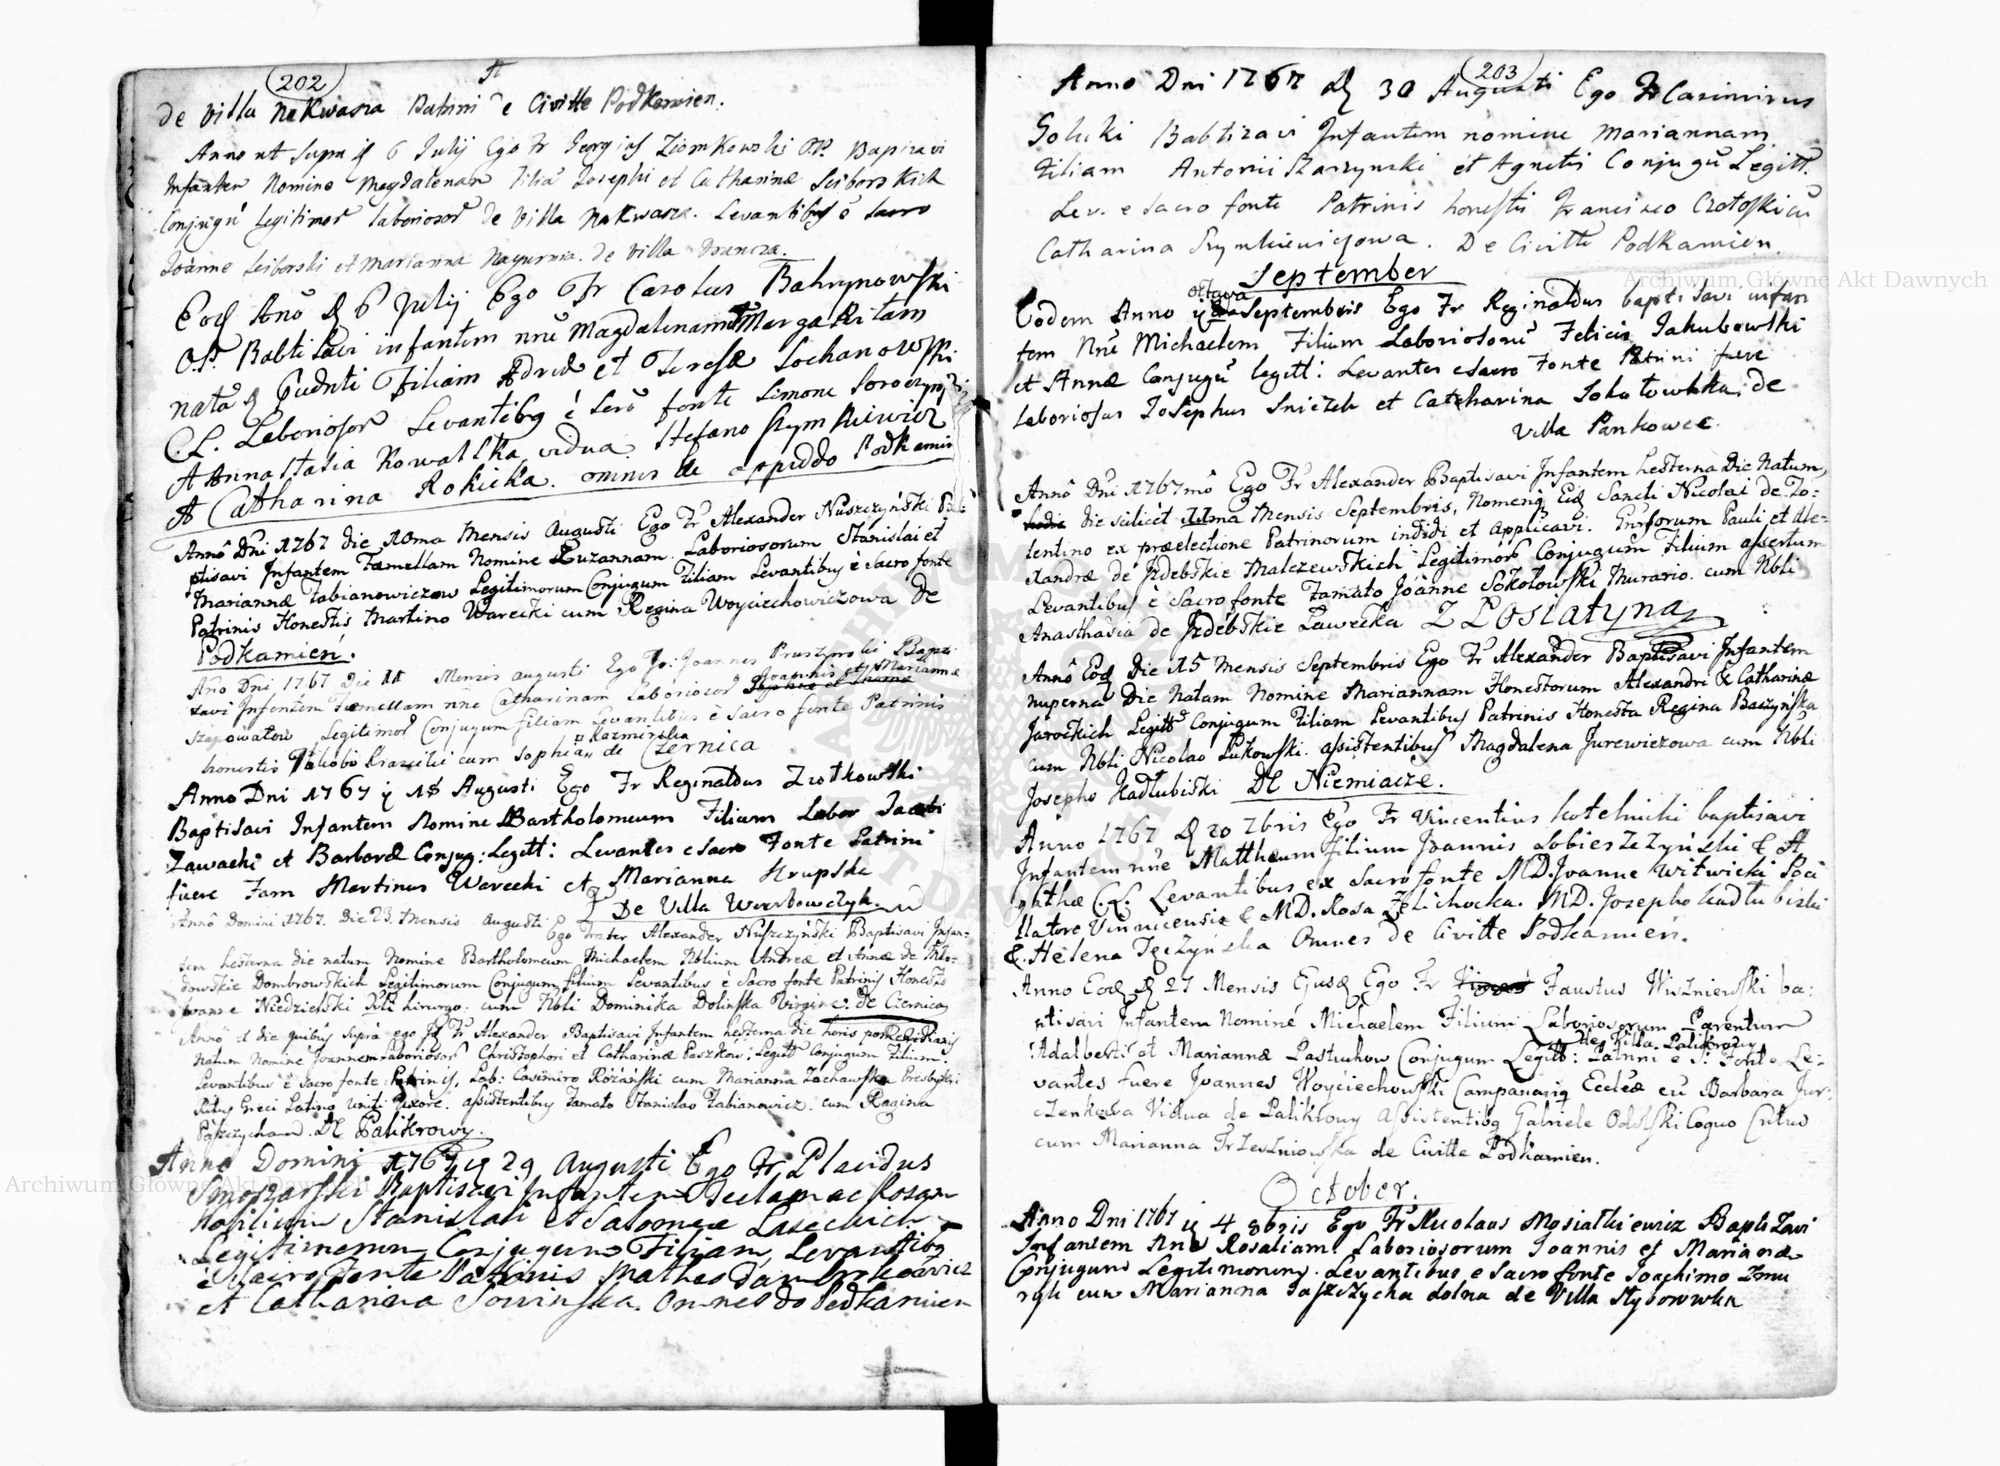 202
de Villa Nakwasza Patrini e Civitte Podkamien.
Anno ut supra 6 Julij Ego Fr Georgius Ziomkowski O.P. Bapizavi
Infantem Nomine Magdalenam Filia Josephi et Catharinæ Seiborskich
Conjugū Legitimor laboriosor de Villa Nakwasza. Levantibus è Sacro
Joanne Seiborski et Marianna Nagurnia. de Villa
Eod Anō 6 Julij Ego Fr Carolus Bahrynowski
O.P. Babtisavi infantem nnē Magdalenam Margaritam
natā Filiam et Teresæ Lochanowski
C.L. Laboriosor Levantibq è Sero fonte Simone
A Annastasia Kowalska vidua Stefano Szymkiewicz
A Catharina Rokicka. omnes de oppiddo Podkamin
Annō Dni 1767 die 10ma Mensis Augusti Ego Fr Alexander Nuszczyński Ba
ptisavi Infantem Fæmellam Nomine Zuzannam. Laboriosorum Stanislai et
Mariannæ Fabianowiczow Legitimorum Conjugum Filiam Levantibus è Sacro fonte
Patrinis Honestis Martino Warecki cum Regina Woyciechowiczowa De
Podkamień.
Año Dni 1767 Die 11 Mensis augusti Ego Fr: Joannes Pruszynski Bapti
Joannis et Mariannæ
zavi Infentem Fæmellam nñe Catharinam Laboriosor
szapowałow Legitimor Conjugum filiam Levantibus è Sacro fonte Patrinis
Kazmirska
honestis Jakobo Krasicki cum Sophia de Czernica
Anno Dni 1767 18 Augusti Ego Fr Reginaldus Zrotkowski
Baptisavi Infantem Nomine Bartholomeum Filium Labor Jacobi
Zawacki et Barboræ Conjug: Legitt: Levantes e Sacro Fonte Patrini
fuere Fam Martinus Warecki et Marianna Krupska
De Villa Wierzbowczyk.
Annō Domini 1767. Die 23. Mensis Augusti Ego Frater Alexander Nuszczyński Baptisavi Infan-
tem hesterna die natum Nomine Bartholomeum Michaelem Nblium Andreæ et Annæ de
dowskie Dombrowskich Legitimorum Conjugum Filium Levantibus è Sacro fonte Patrinis Honesto
Joanne Niedzielski hirurgo. cum Nbli Dominika Dolińska Virgine. de Ciernica
Annō et die quibus supra ego Fr Alexander Baptisavi Infantem hesterna die horis
natum Nomine Joannem Laboriosor Christophori et Catharinæ Paszkow, Legitt Conjugum Filium.
Levantibus è Sacro fonte Patrinis, Lab: Casimiro Różański cum Marianna Zachawska Presbyteri
Ritus Greci Latino Uniti Uxore. assistentibus Famato Stanislao Fabianowicz. cum Regina
De Palikrowy.
Anno Domini 1767 29 Augusti Ego Fr. Placidus
Baptisavi Infantem Rosam
Nobilium Stanislali et Salomeæ Laseckich
Legitimorum Conjugum Filiam, Levantibs
è Sacro fonte Patrinis Matheo
et Catharina Sowinska. Omnes de Podkamien
203
Anno Dni 1767 30 Augusti Ego Fr Casimirus
Golucki Babtizavi Infantem nomine Mariannam
Filiam Antonii Raszynski et Agnetis Conjugū Legitt.
Lev. e Sacro fonte Patrinis honestis Francisco
Catharina Szymkiewiczowa. De Civitte Podkamien.
September
octava
Eodem Anno Septembris Ego Fr Reginaldus baptisavi infan
tem Nnē Michaelem Filium Laboriosorū Felicis Jakubowski
et Annæ Conjugū legitt: Levantes e Sacro Fonte Patrini fuere
laboriosus Josephus Sniezek et Catharina Sokolowska, de
Villa Pankowce.
Annō Dni 1767mō Ego Fr Alexander Baptisavi Infantem hesterna Die Natum,
die scilicet 11ma Mensis Septembris, Sancti Nicolai de To-
lentino ex præelectione Patrinorum indidi et applicavi. Pauli et Ale-
xandræ de Jzdebskie Malczewskich Legitimor Conjugum Filium assertum
Levantibus è Sacro fonte Famato Joanne Sokołowski Murario. cum Nbli
Anasthasia de Jzdebskie Ławecka Z Posiatyna
Annō Eod Die 15 Mensis Septembris Ego Fr Alexander Baptisavi Infantem
nuperna Die Natam Nomine Mariannam Honestorum Alexandri & Catharinæ
Jarockich Legitt Conjugum Filiam Levantibus Patrinis Honesta Regina Baszyńska
cum Nbli Nicolao Łukowski. assistentibus Magdalena Jurewiczowa cum Nbli
Josepho Kadłubiski De Niemiacze.
Anno 1767 20 7bris Ego Fr Vincentius Kotelnicki baptisavi
Infantem nñe Matthæum filium Joannis Sobieszczyński & A
gathæ C.L. Levantibus ex Sacro fonte MD. Joanne Witwicki
Vinnicensis & MD. Rosa Zelichocka. MD. Josepho Kadłubiski
& Helena Tęczyńska Omnes de Civitte Podkamień.
Anno Eod 27 Mensis Ejusd Ego Fr Faustus Wiszniewski ba:
ptisavi Infantem Nominé Michaelem Filium Laboriosorum Parentum
de Villa Palikrowy
Adalberti et Mariannæ Pastuchow Conjugum Legitt: Patrini è S: Fonte Le-
vantes fuere Joannes Woyciechowski Campanariq Eccleæ cū Barbara Jur-
czenkowa Vidua de Palikrowy Assistentibq Gabriele Coquo
cum Marianna Trzeszniowska de Civitte Podkamien.
October.
Anno Dni 1767 4 8bris Ego Fr Nicolaus Mosiatkiewicz Baptizavi
Infantem Nne Rosaliam. Laboriosorum Joannis et Marianæ
Conjugum Legitimorum. Levantibus e Sacro fonte Joachimo
cum Marianna dolna de Villa Styborowka
Archiwum Główne Akt Dawnych
Archiwum Główne Akt Dawnych